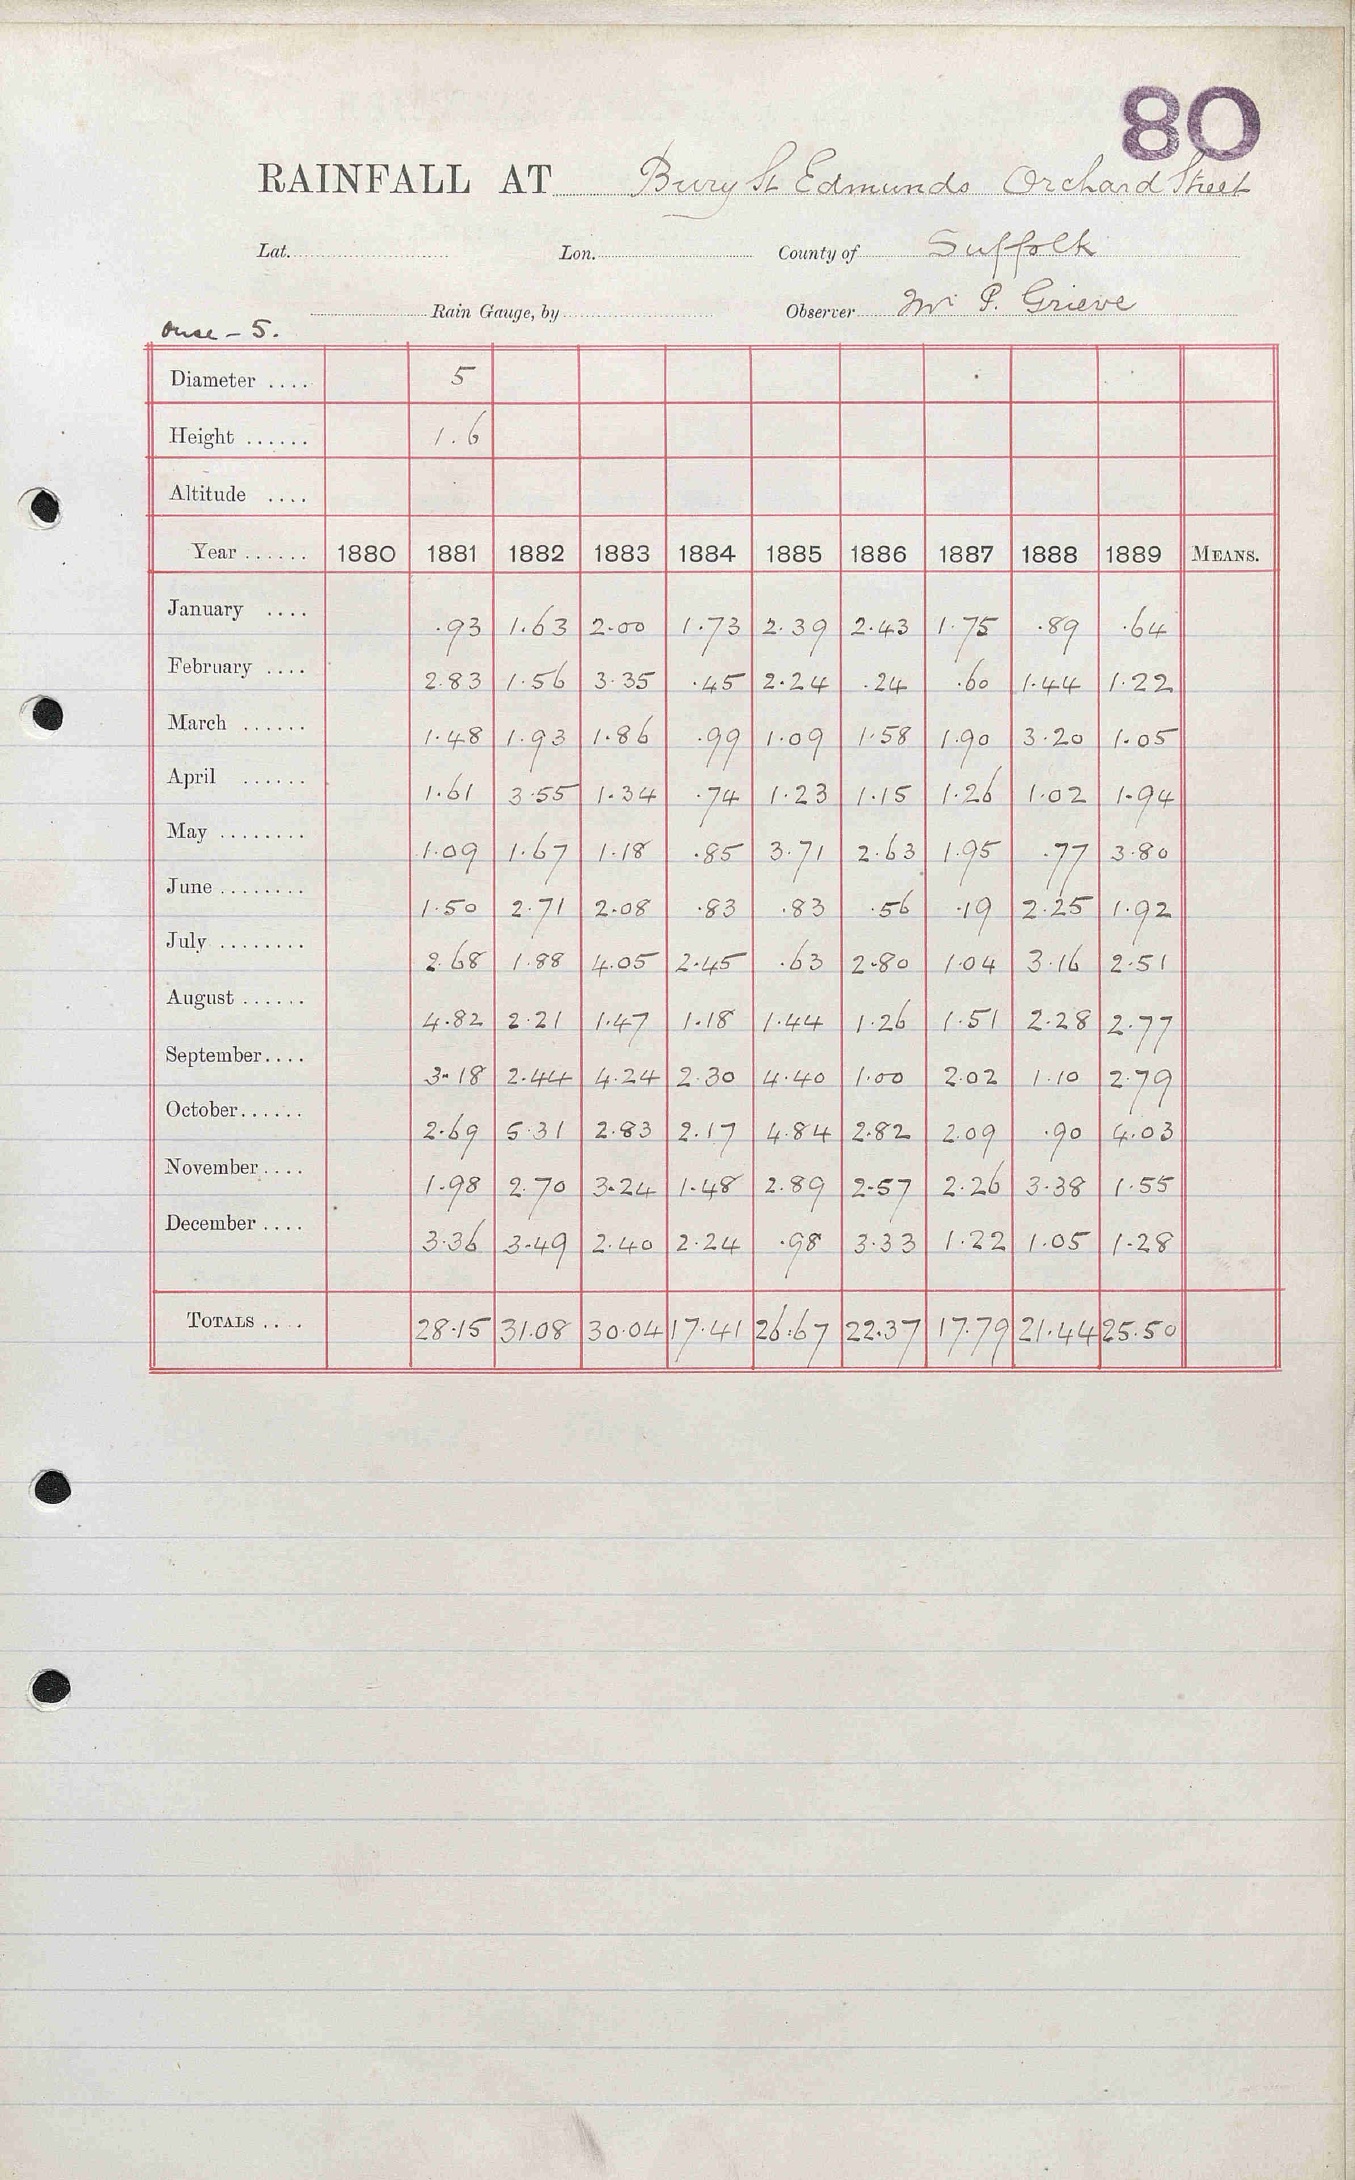 80
RAINFALL AT Bury St Edmunds Orchard Street
Lat. Lon. County of Suffolk
Rain Gauge, by Observer Mr P. Grieve
Ouse - 5.
Diameter .... 5
Height ...... 1.6
Altitude ....
Year ...... 1880 1881 1882 1883 1884 1885 1886 1887 1888 1889 MEANS.
January .... .93 1.63 2.00 1.73 2.39 2.43 1.75 .89 .64
February .... 2.83 1.56 3.35 .45 2.24 .24 .60 1.44 1.22
March ...... 1.48 1.93 1.86 .99 1.09 1.58 1.90 3.20 1.05
April ...... 1.61 3.55 1.34 .74 1.23 1.15 1.26 1.02 1.94
May ........ 1.09 1.67 1.18 .85 3.71 2.63 1.95 .77 3.80
June ........ 1.50 2.71 2.08 .83 .83 .56 .19 2.25 1.92
July ........ 2.68 1.88 4.05 2.45 .63 2.80 1.04 3.16 2.51
August ...... 4.82 2.21 1.47 1.18 1.44 1.26 1.51 2.28 2.77
September .... 3.18 2.44 4.24 2.30 4.40 1.00 2.02 1.10 2.79
October ...... 2.69 5.31 2.83 2.17 4.84 2.82 2.09 .90 4.03
November .... 1.98 2.70 3.24 1.48 2.89 2.57 2.26 3.38 1.55
December .... 3.36 3.49 2.40 2.24 .98 3.33 1.22 1.05 1.28
TOTALS .... 28.15 31.08 30.04 17.41 26.67 22.37 17.79 21.44 25.50